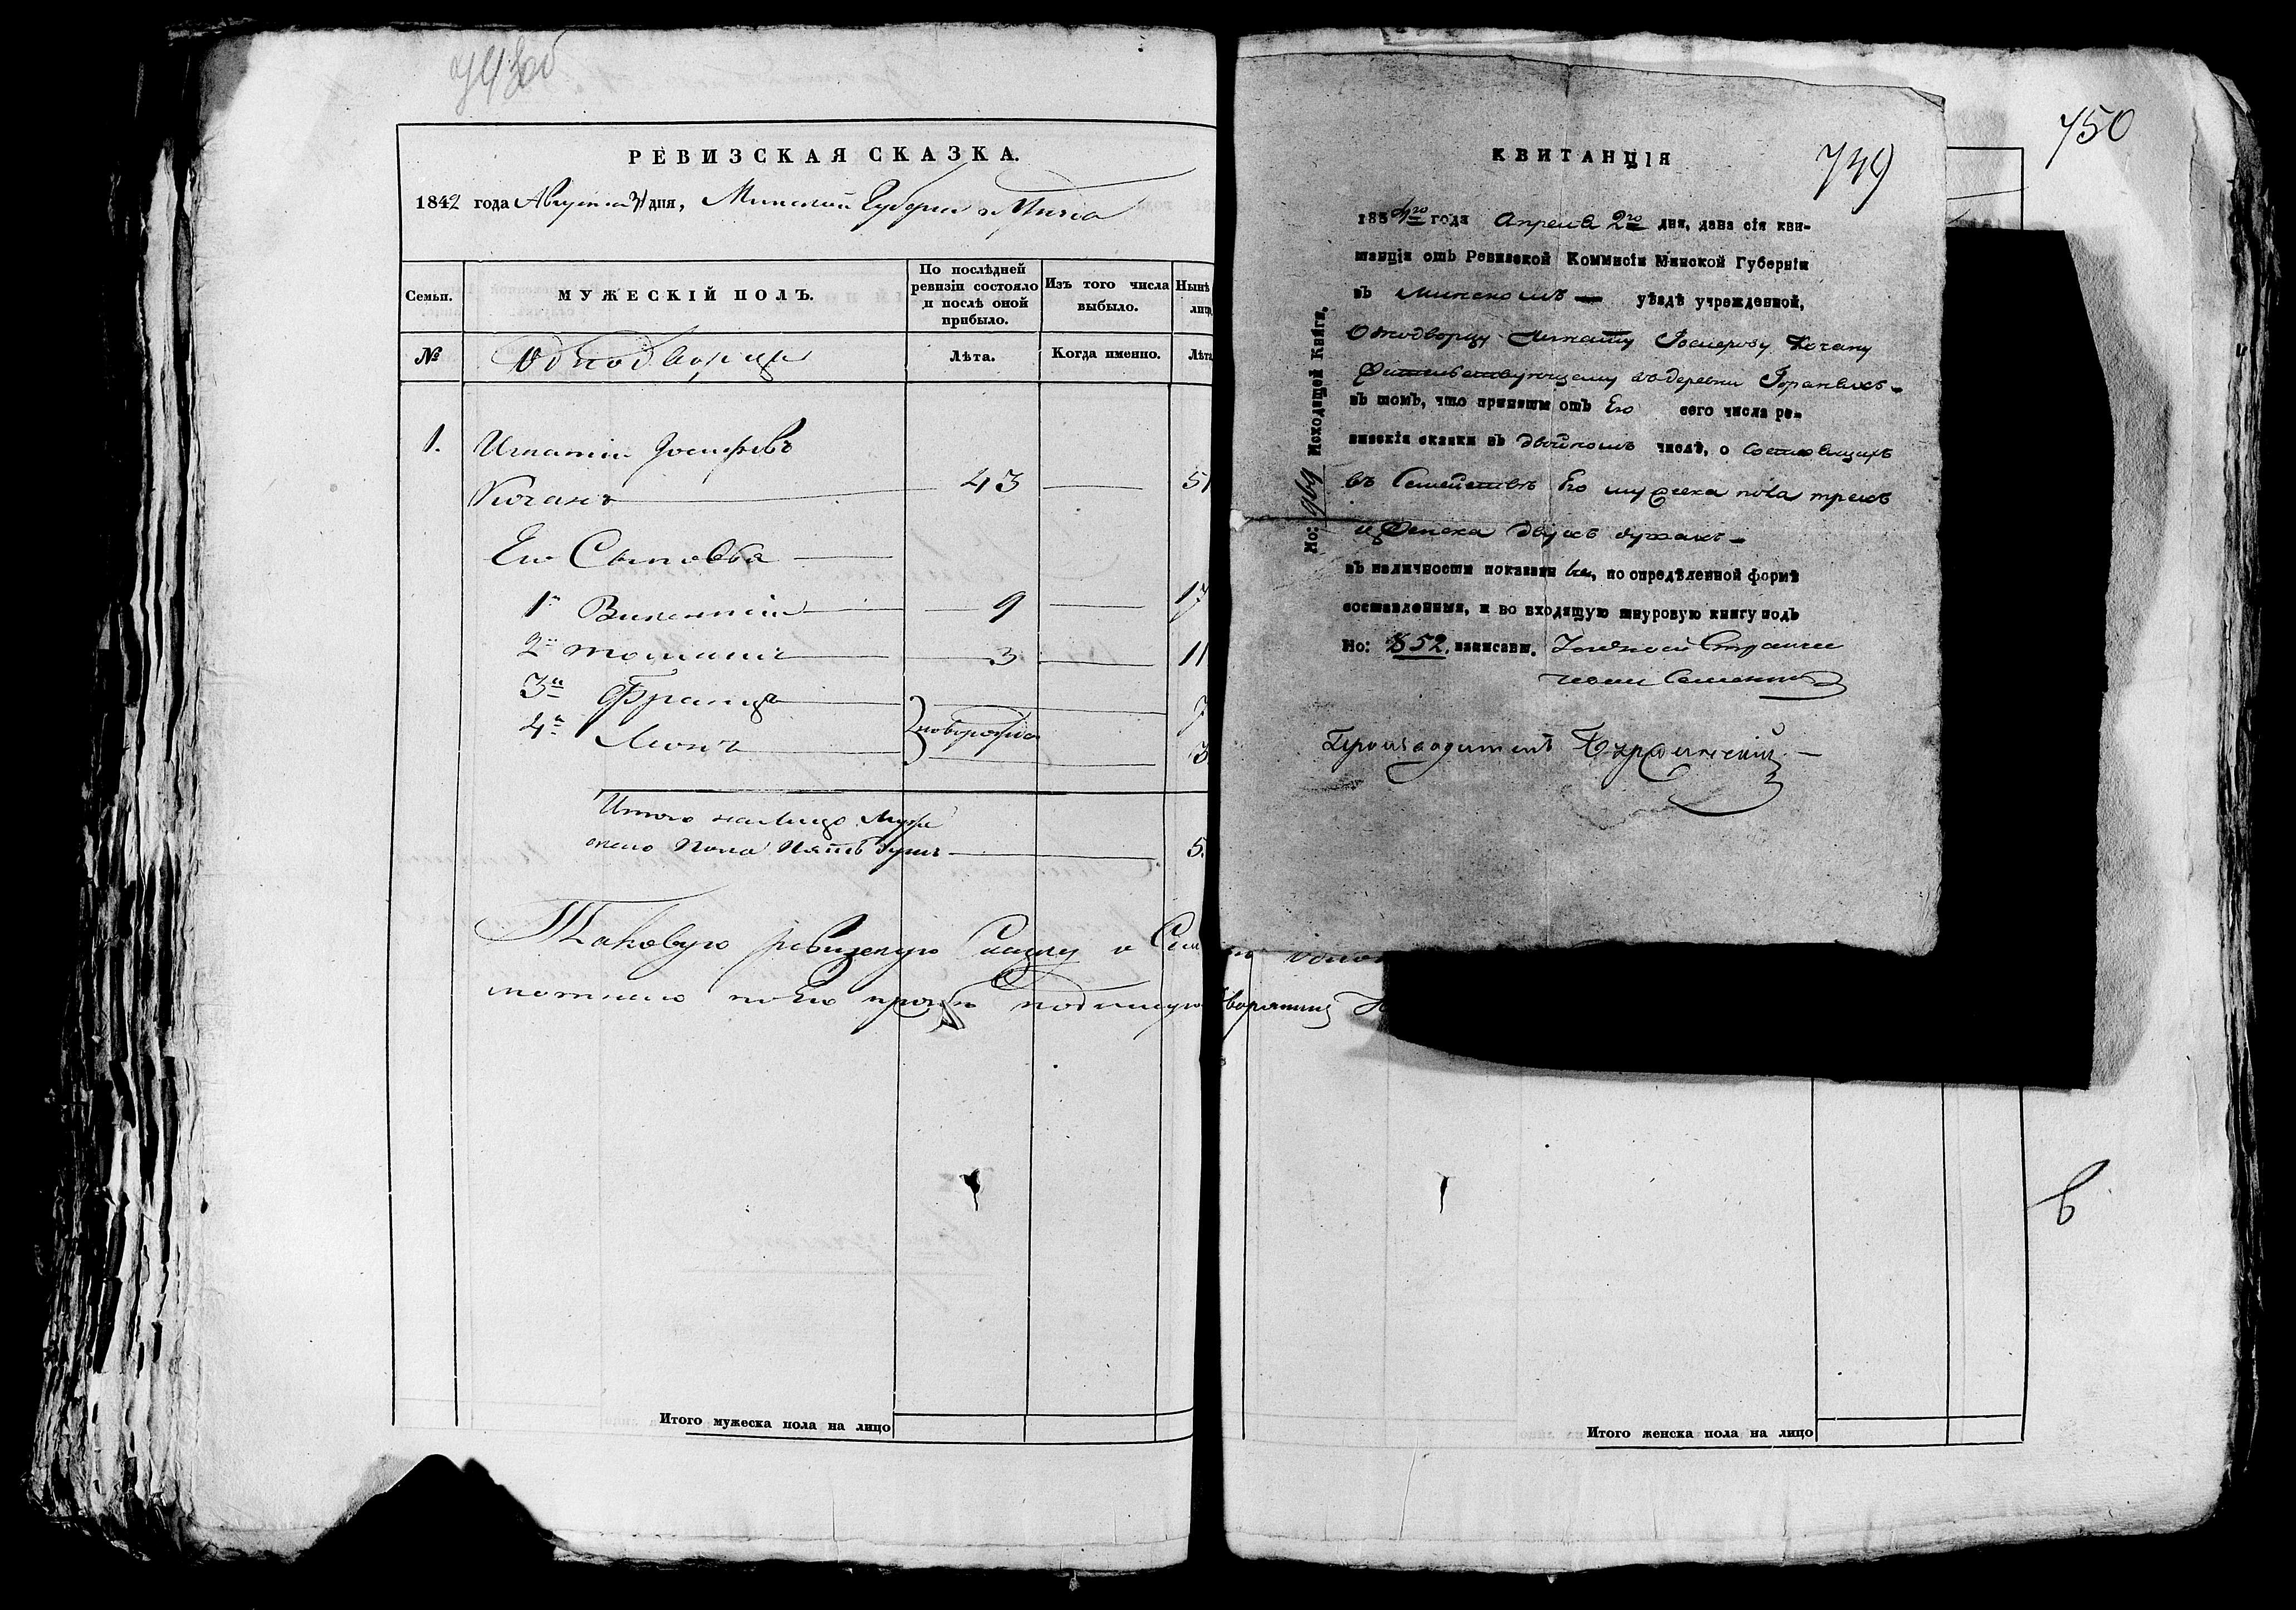 748об
РЕВИЗСКАЯ СКАЗКА.
1842 года Августа 31 дня, Минской Губерніи
Семьи.
МУЖЕСКІЙ ПОЛЪ.
По послѣдней
ревизіи состояло
и послѣ оной
прибыло.
Изъ того числа
выбыло.
Нынѣ
лицо
№
Однодворцы
Лѣта.
Когда именно.
Лѣта
1. Игнатій Іосифовъ
Кочанъ 43 51
Его Сыновья
1й Викентій 9 17
2й Томашъ 3 11
3й Францъ 7
новорожд
4й Леонъ 3
Итого на Лицо Муже
скаго Пола Пять душъ 5
Таковую ревизскую Сказку о Сем
по Его прозбѣ подписую Дворянинъ
Итого мужеска пола на лицо
750
749
КВИТАНЦІЯ
1834го года Апреля 2го дня, дана сія кви-
танція отъ Ревизской Коммисіи Минской Губерніи
въ Минскомъ уѣздѣ учрежденной,
Однодворцу Игнату Іосифову Кочану
Жительствующему въ деревни
въ томъ, что приняты отъ Его сего числа ре-
визскія сказки въ двойномъ числѣ, о состоявщихъ
въ Семействѣ Его мужеска пола трехъ
и Женска двухъ душахъ
въ наличности показан по опредѣленной формѣ
составленныя, и во входящую шнуровую книгу подъ
No: 852. записаны. Уездной Стряпчей
Производитель
No: 969 Исходящей Книги.
6
Итого женска пола на лицо